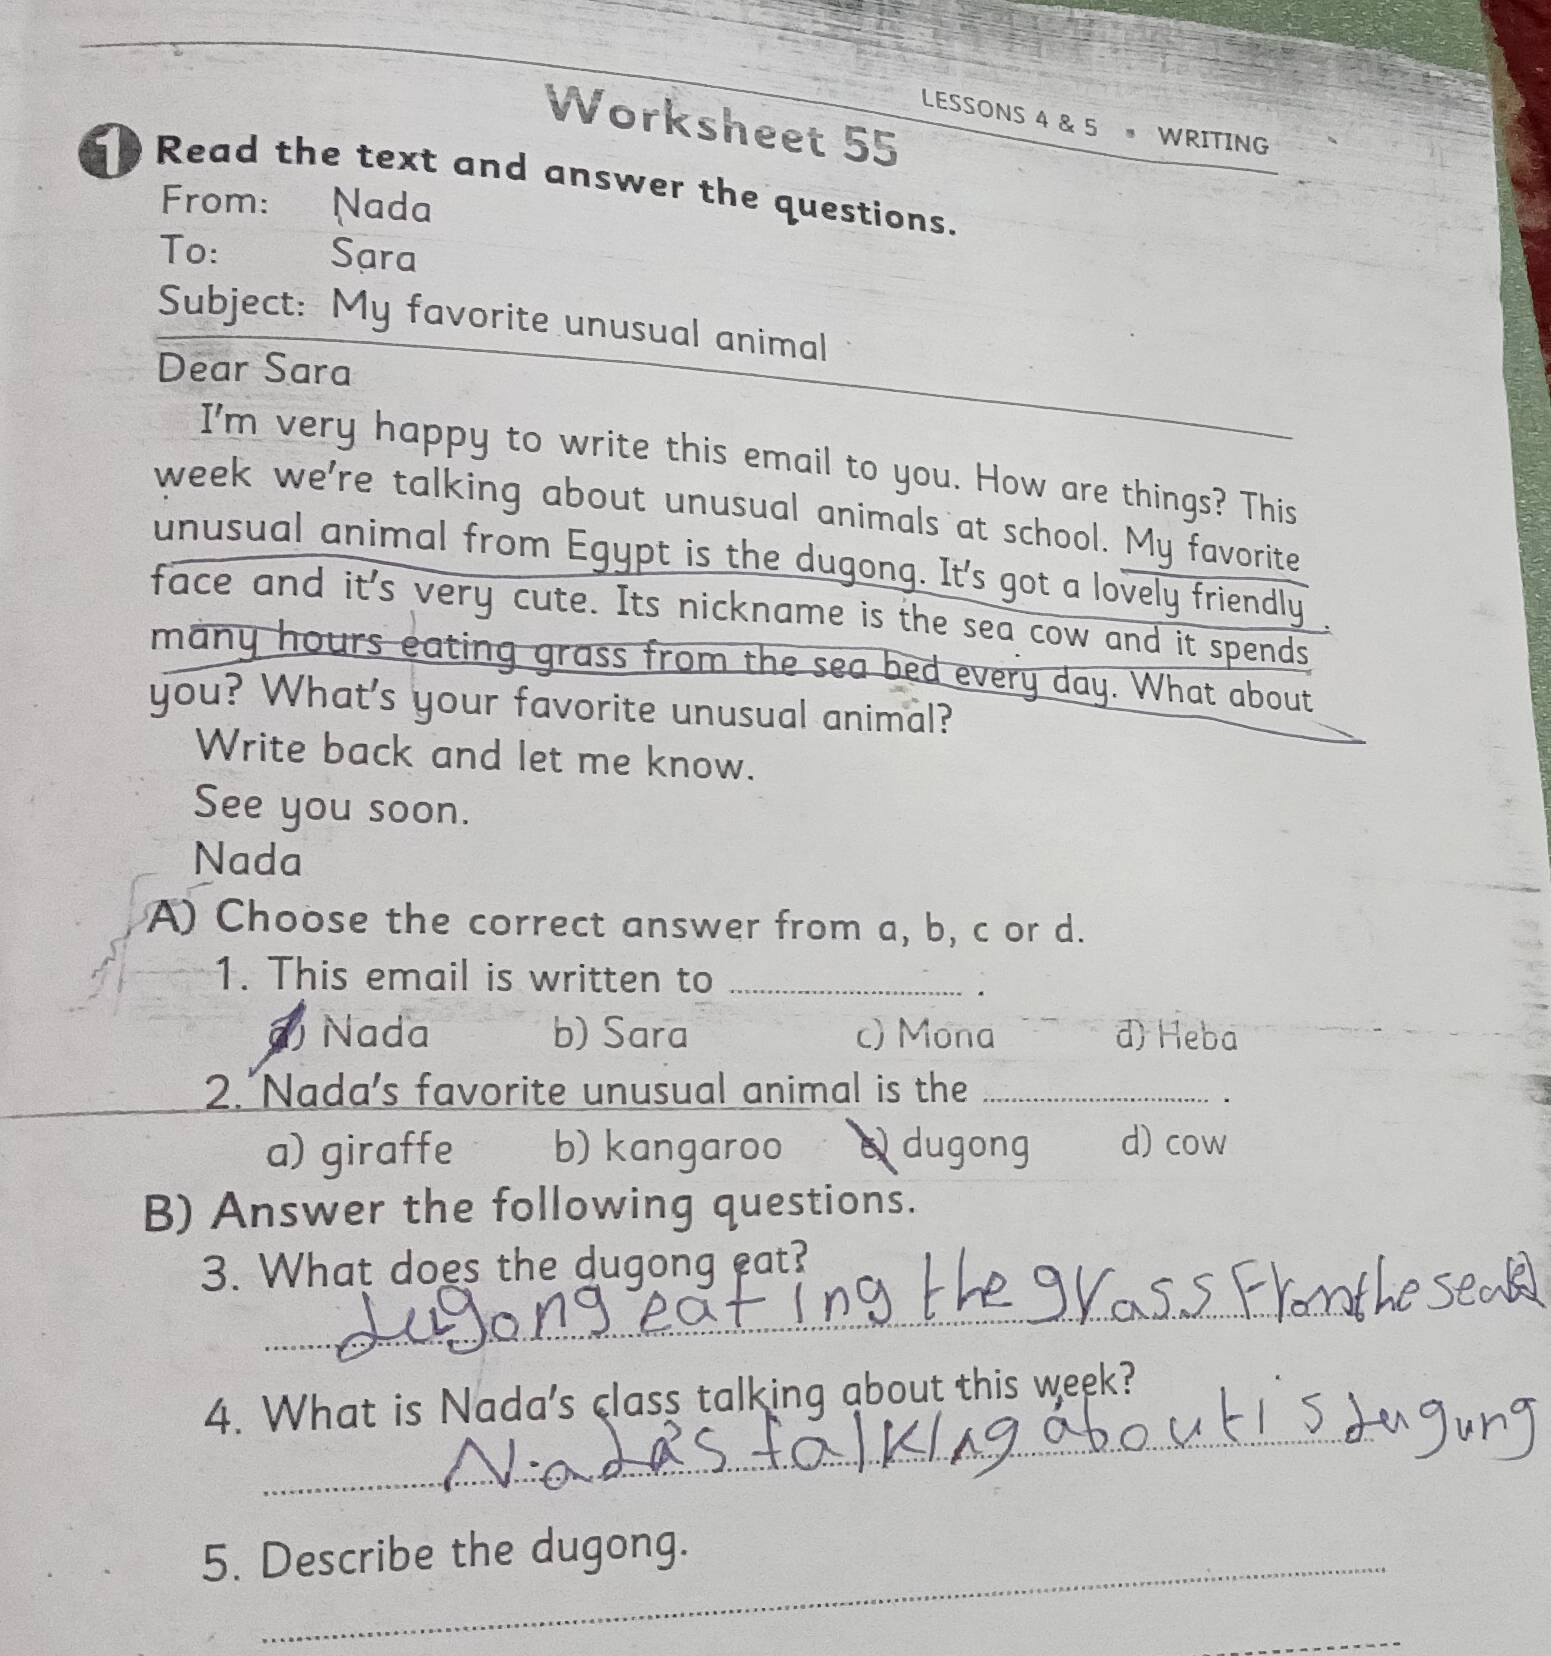 LESSONS 4 & 5 • WRITING
Worksheet 55
1 Read the text and answer the questions.
From: Nada
To: Sara
Subject: My favorite unusual animal
Dear Sara
I'm very happy to write this email to you. How are things? This
week we're talking about unusual animals at school. My favorite
unusual animal from Egypt is the dugong. It's got a lovely friendly
face and it's very cute. Its nickname is the sea cow and it spends
many hours eating grass from the sea bed every day. What about
you? What's your favorite unusual animal?
Write back and let me know.
See you soon.
Nada
A) Choose the correct answer from a, b, c or d.
1. This email is written to .................... .
a) Nada b) Sara c) Mona d) Heba
2. Nada's favorite unusual animal is the .................... .
a) giraffe b) kangaroo c) dugong d) cow
B) Answer the following questions.
3. What does the dugong eat?
dugong eating the grass From the sea
4. What is Nada's class talking about this week?
Nada's talking about is dugung
5. Describe the dugong.